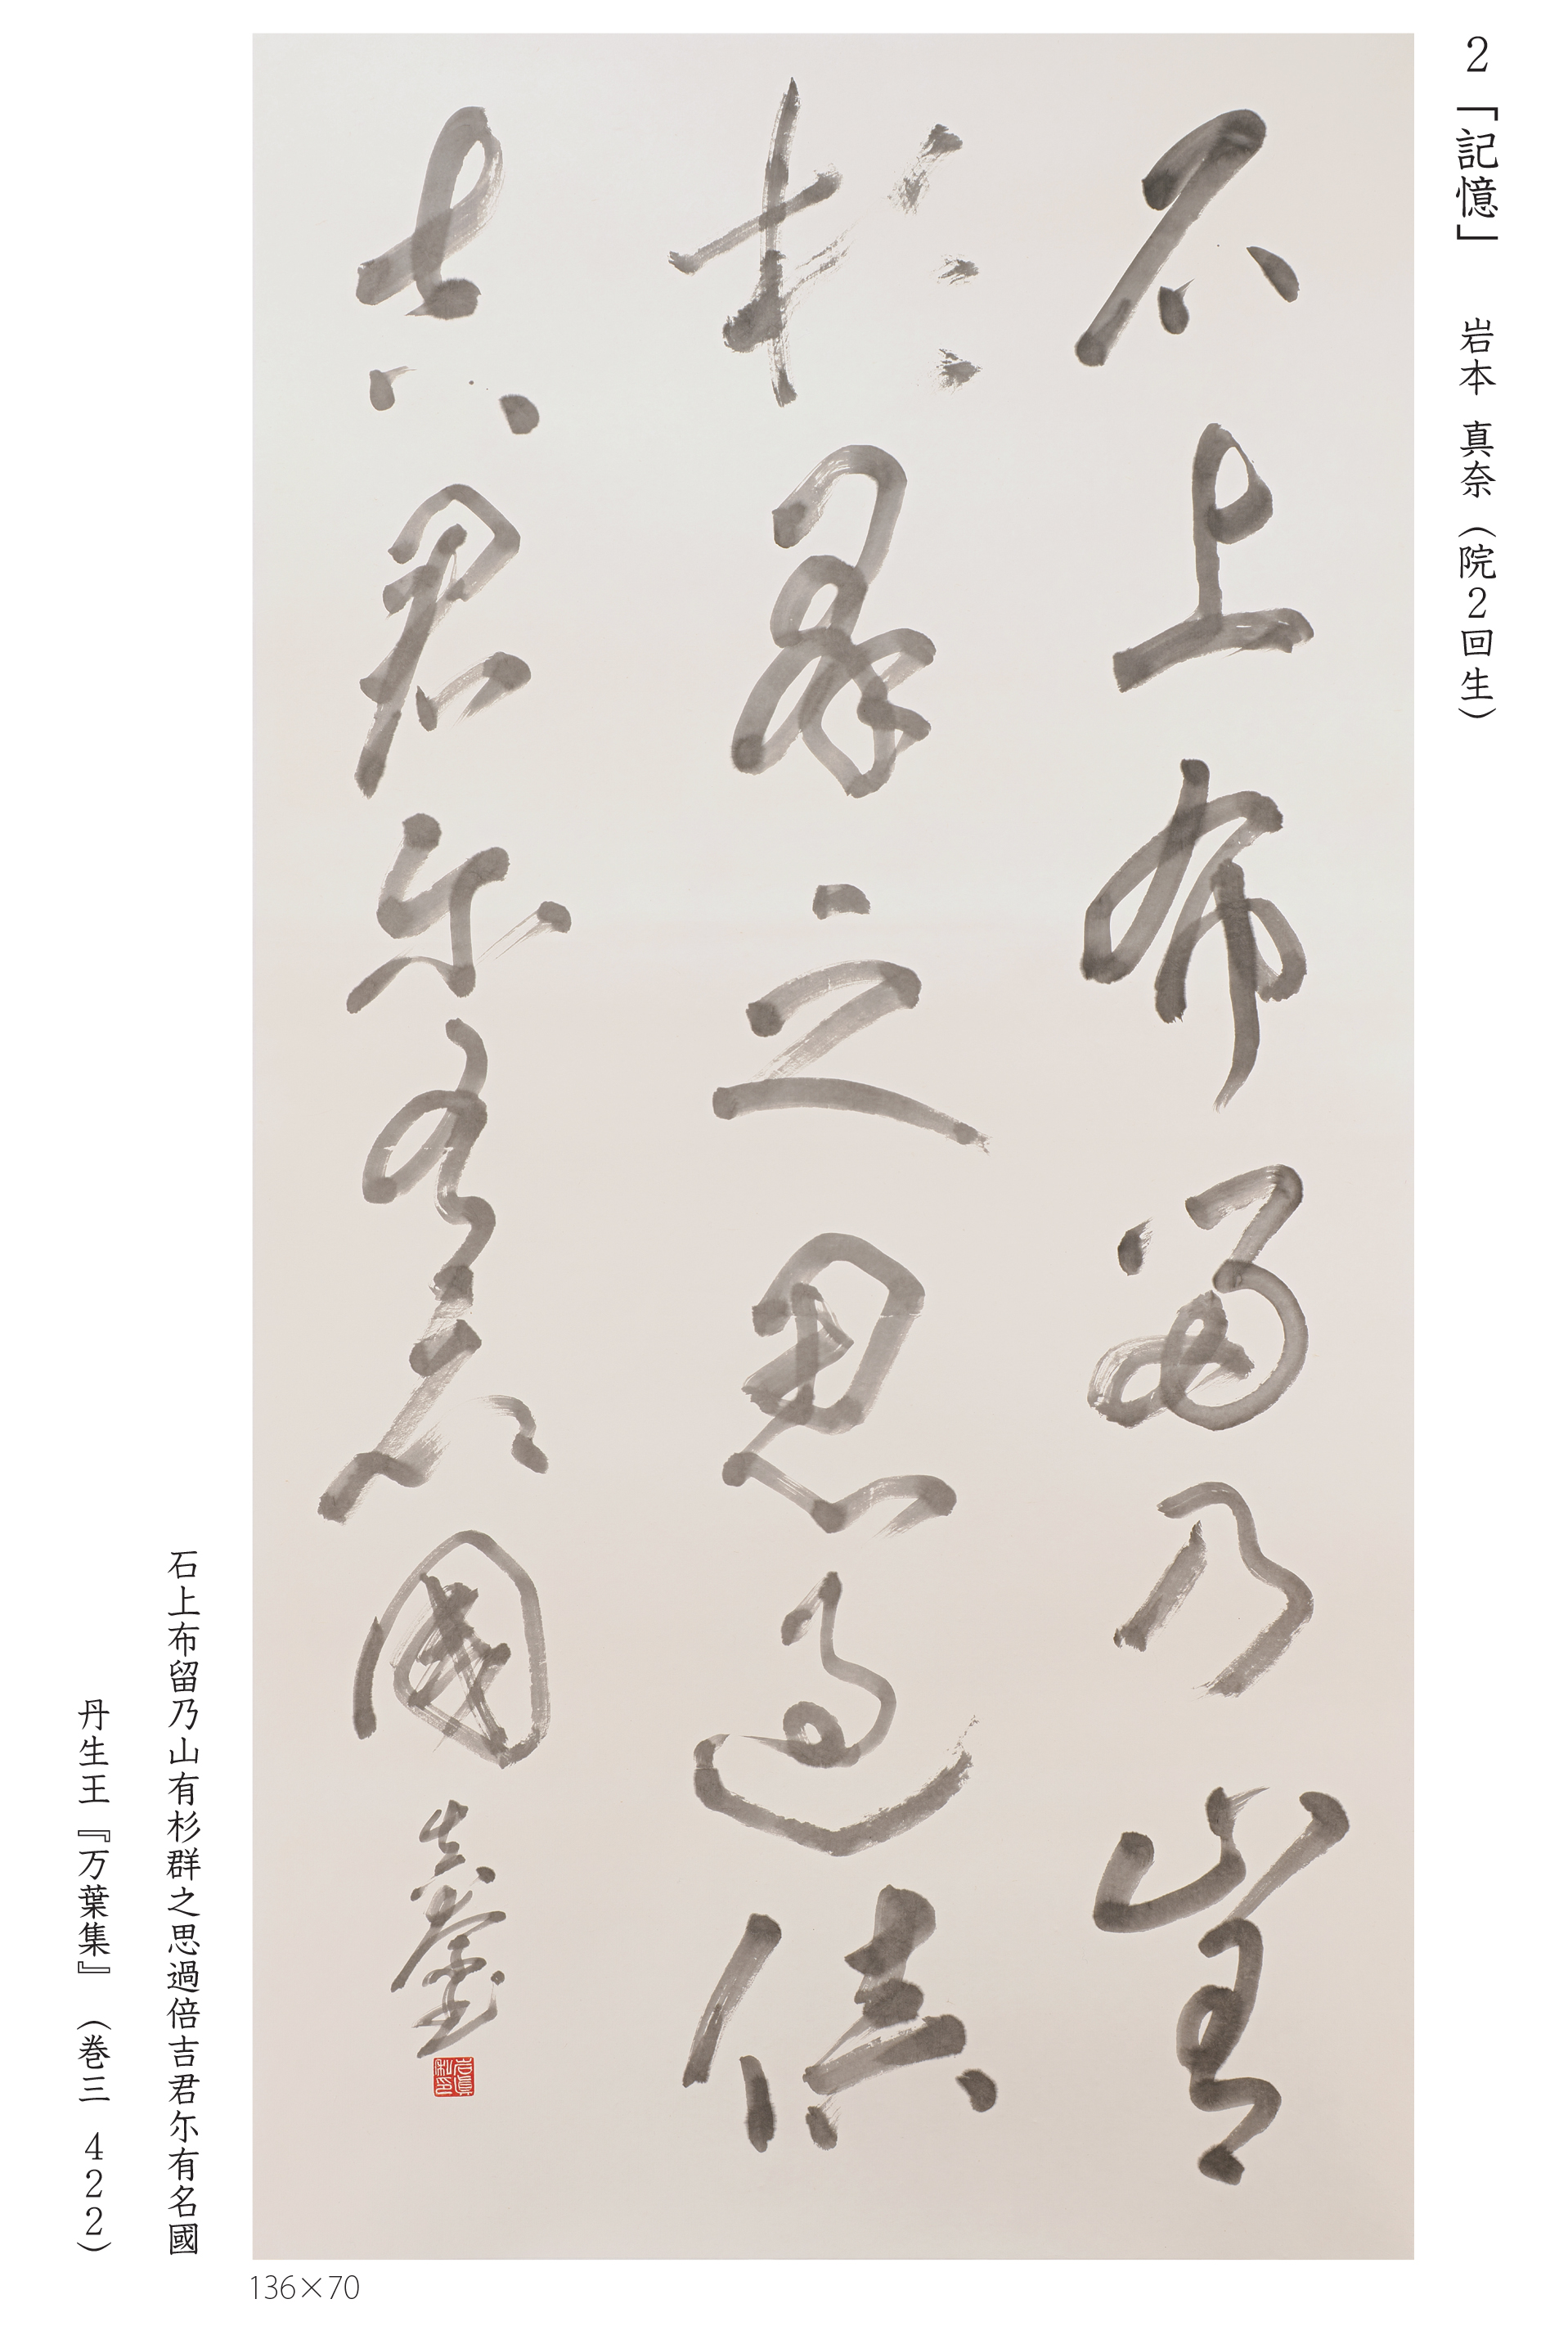 2 「記憶」 岩本 真奈（院2回生）
石上布留乃山有
杉群之思過倍
吉君尓有名國
石上布留乃山有杉群之思過倍吉君尓有名國
丹生王『万葉集』（巻三 422）
136×70